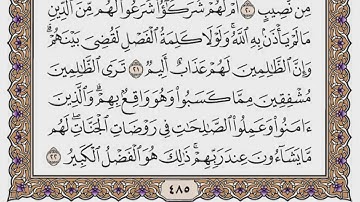 مِن نَّصِيبٍ ٢٠ أَمْ لَهُمْ شُرَكَٰٓؤُا۟ شَرَعُوا۟ لَهُم مِّنَ ٱلدِّينِ
مَا لَمْ يَأْذَنۢ بِهِ ٱللَّهُ ۚ وَلَوْلَا كَلِمَةُ ٱلْفَصْلِ لَقُضِىَ بَيْنَهُمْ ۗ
وَإِنَّ ٱلظَّٰلِمِينَ لَهُمْ عَذَابٌ أَلِيمٌ ٢١ تَرَى ٱلظَّٰلِمِينَ
مُشْفِقِينَ مِمَّا كَسَبُوا۟ وَهُوَ وَاقِعٌۢ بِهِمْ ۗ وَٱلَّذِينَ
ءَامَنُوا۟ وَعَمِلُوا۟ ٱلصَّٰلِحَٰتِ فِى رَوْضَاتِ ٱلْجَنَّاتِ ۖ لَهُم
مَّا يَشَآءُونَ عِندَ رَبِّهِمْ ۚ ذَٰلِكَ هُوَ ٱلْفَضْلُ ٱلْكَبِيرُ ٢٢
٤٨٥